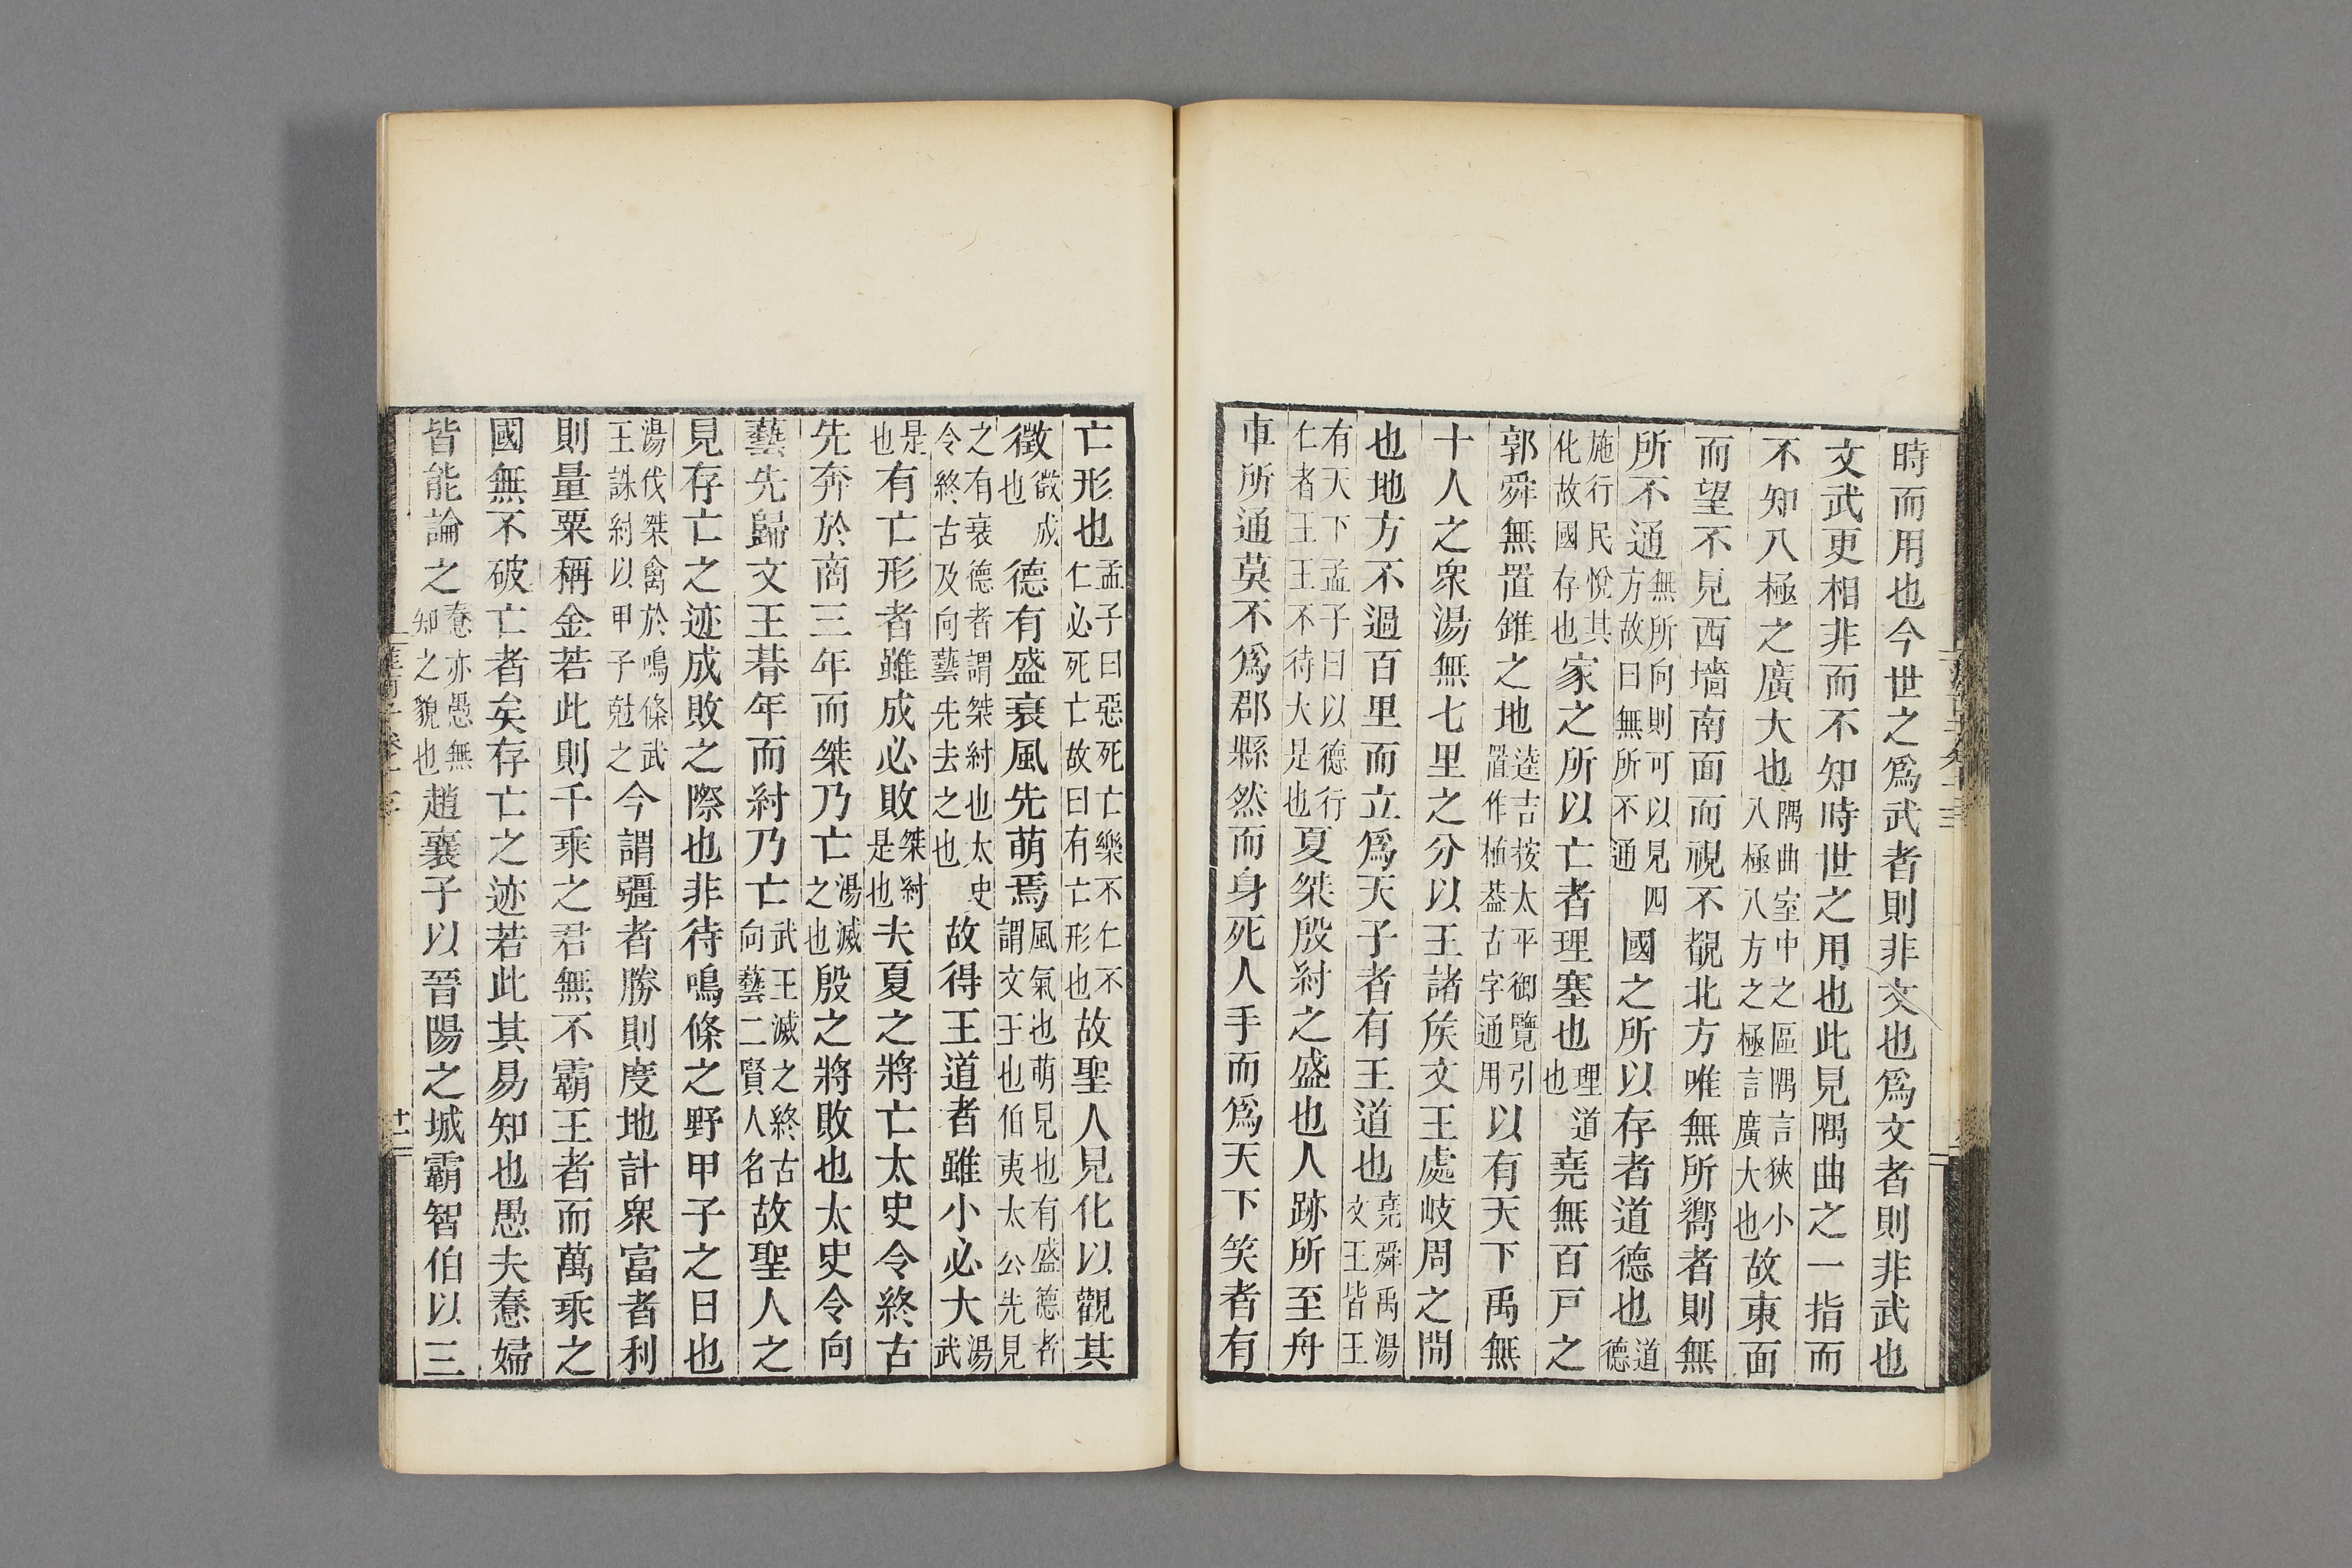 時而用也今世之爲武者則非文也爲文者則非武也
文武更相非而不知時世之用也此見隅曲之一指而
不知八極之廣大也隅曲室中之區隅言狹小八極八方之極言廣大也故東面
而望不見西墻南面而視不覩北方唯無所嚮者則無
所不通無所向則可以見四方故曰無所不通國之所以存者道德也道德
施行民悅其化故國存也家之所以亡者理塞也理道也堯無百戸之
郭舜無置錐之地逵吉按太平御覽引置作植葢古字通用以有天下禹無
十人之衆湯無七里之分以王諸矦文王處岐周之閒
也地方不過百里而立爲天子者有王道也堯舜禹湯文王皆王
有天下孟子曰以德行仁者王王不待大是也夏桀殷紂之盛也人跡所至舟
車所通莫不爲郡縣然而身死人手而爲天下笑者有
亡形也孟子曰惡死亡樂不仁不仁必死亡故曰有亡形也故聖人見化以觀其
徵徵成也德有盛衰風先萌焉風氣也萌見也有盛德者謂文王也伯夷太公先見
之有衰德者謂桀紂也太史令終古及向藝先去之也故得王道者雖小必大湯武
是也有亡形者雖成必敗桀紂是也夫夏之將亡太史令終古
先奔於商三年而桀乃亡湯滅之也殷之將敗也太史令向
藝先歸文王朞年而紂乃亡武王滅之終古向藝二賢人名故聖人之
見存亡之迹成敗之際也非待鳴條之野甲子之日也
湯伐桀禽於鳴條武王誅紂以甲子尅之今謂彊者勝則度地計衆富者利
則量粟稱金若此則千乘之君無不霸王者而萬乘之
國無不破亡者矣存亡之迹若此其易知也愚夫惷婦
皆能論之惷亦愚無知之貌也趙襄子以晉陽之城霸智伯以三